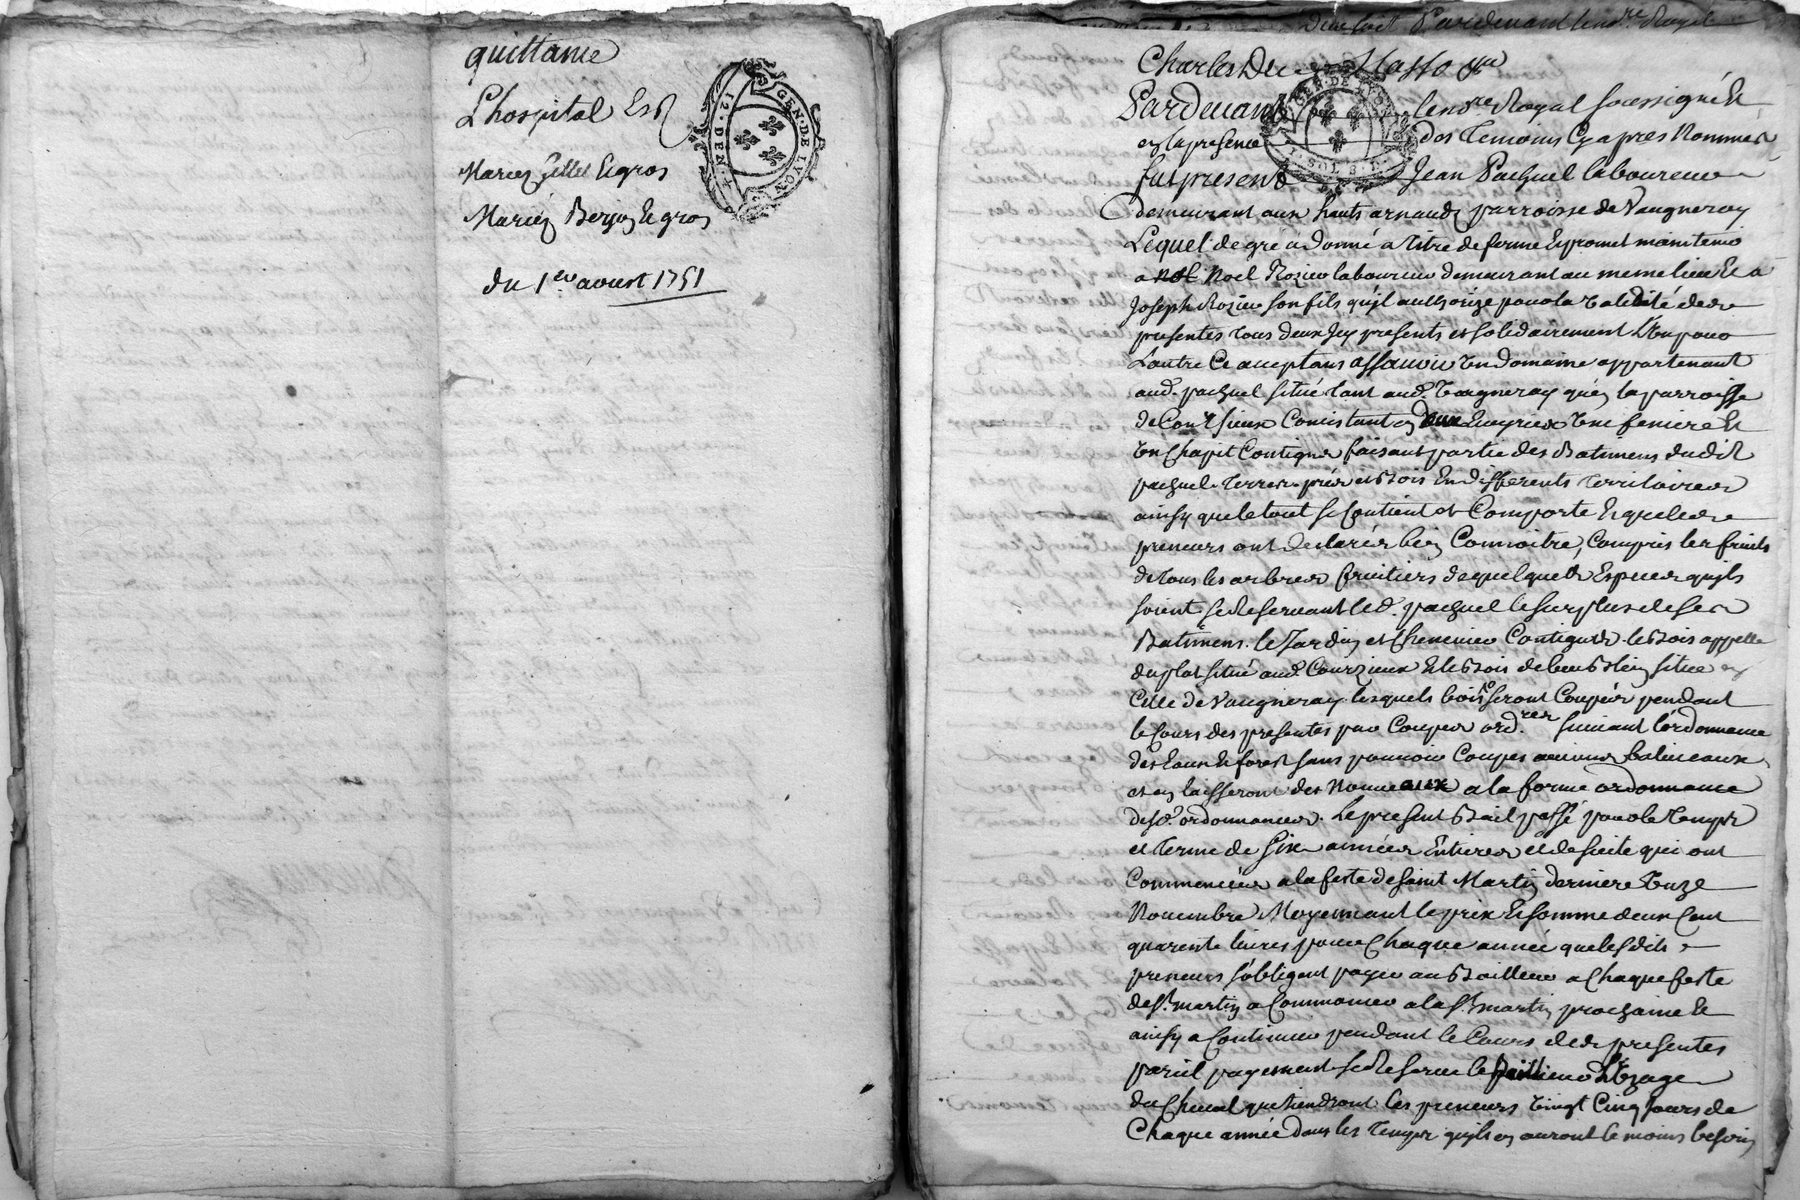 quittance
Lhospital Est
Mariez Gillet Legros
Mariez Berjon Legros
du 1er aoust 1751
12. DEN. GEN. DE LYON
Pardevant le no.re Royal
Charles
GEN. DE LYON
SOLS
Pardevant le no.re Royal soussigné Et
en la presence des Temoins Cy apres Nommés
fut present Jean Pachuel laboureur
demeurant aux hauts arnauds parroisse de Vaugneray
Lequel de gré a donné a titre de ferme Et promet maintenir
a Noel Rozier laboureur demeurant au meme lieu Et a
Joseph Rozier son fils qu'jl authorize pour la validité des
presentes tous deux Jcy presents et solidairement L'un pour
Lautre Ce acceptans assavoir un domaine appartenant
aud. pachuel situé tant aud. Vaugneray qu'en la parroisse
de Courzieux Consistant en deux Ecuyries une feniere Et
un Chapit Contigus faisant partie des Batimens dudit
pachuel. terres prés et Bois En differents territoires
ainsy que le tout se Contient et Comporte Et que les
preneurs ont declarés bien Connoitre, Compris les fruits
de tous les arbres fruitiers de quelques Especes qu'jls
soient se Reservant led. pachuel le surplus de ses
Batimens. le Jardin et Chenevier Contigus. les Bois appellé
du plat situé aud. Courzieux Et le Bois de situé en
Celle de Vaugneray lesquels bois seront Coupés pendant
le Cours des presentes par Coupes ord.res suivant l'ordonnance
des Eaux Et forest sans pouvoir Couper aucuns baliveaux
et en laisseront des Nouveaux a la forme ordonnance
desd. ordonnances. Le present Bail passé pour le temps
et terme de Six années Entieres et de suite qui ont
Commencées a la feste de Saint Martin derniere Onze
Novembre Moyennant le prix Et somme de un Cent
quarente livres pour Chaque année que lesdits
preneurs s'obligent payer au Bailleur a Chaque feste
de St. martin a Commancer a la St. martin prochaine Et
ainsy a Continuer pendant le Cours des presentes
pareil payement se Reserve le L'Uzage
du Cheval que tiendront les preneurs vingt Cinq Jours de
Chaque année dans les temps qu'jls en auront le moins besoin